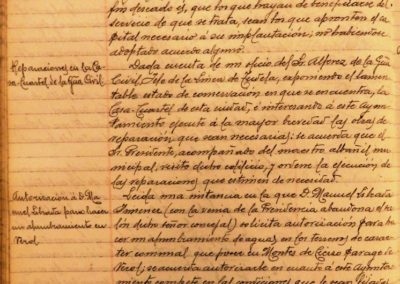 fin deseado el, que los que hayan de beneficiarse del
servicio de que se trata, sean los que apronten el ca-
pital necesario á su implantación; no habiéndose
adoptado acuerdo alguno.
Reparaciones en la Ca-
sa-cuartel de la Gua. Civil.
Dada cuenta de un oficio del Sr. Alferez de la Gua.
Civil, Jefe de la linea de Tudela, exponiendo el lamen-
table estado de conservación en que se encuentra, la
Casa-Cuartel de esta ciudad, é interesando á este Ayun-
tamiento ejecute á la mayor brevedad las obras de
reparación que sean necesarias; se acuerda que el
Sr. Presidente, acompañado del maestro albañil mu-
nicipal, visite dicho edificio, y ordene la ejecución de
las reparaciones que estimen de necesidad.
Autorización á D. Ma-
nuel para hacer
un alumbramiento en
Leida una instancia en la que D. Manuel
Jimenez (con la venia de la Presidencia abandona el sa-
lón dicho señor concejal) solicita autorización para ha-
cer un alumbramiento de aguas en los terrenos de carac-
ter comunal que posee en Montes de Cierzo parage de
se acuerda autorizarle en cuanto á este Ayunta-
miento compete en las condiciones que le sean fijadas